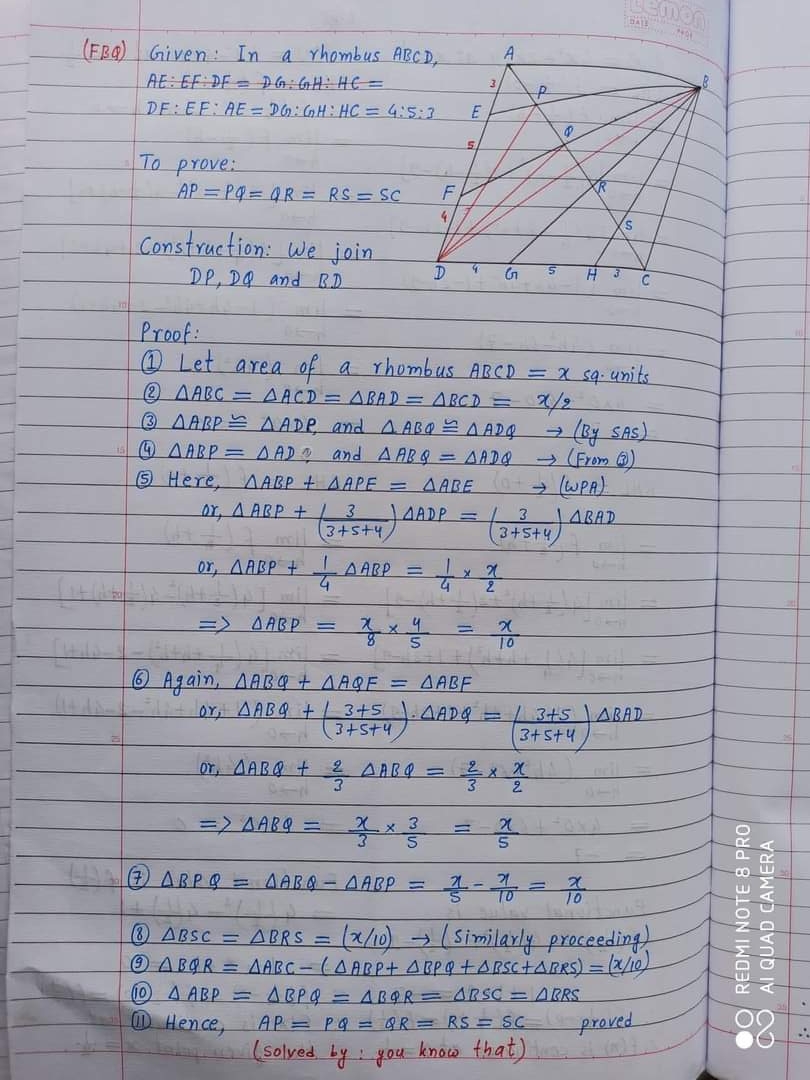 Lemon
DATE
PAGE
(FBQ) Given: In a rhombus ABCD,
AE:EF:DF = DG:GH:HC =
DF:EF:AE = DG:GH:HC = 4:5:3
To prove:
AP = PQ = QR = RS = SC
Construction: We join
DP, DQ and BD
A
3
P
B
E
Q
5
R
F
S
4
D 4 G 5 H 3 C
Proof:
① Let area of a rhombus ABCD = x sq. units
② ΔABC = ΔACD = ΔBAD = ΔBCD = x/2
③ ΔABP ≅ ΔADP, and ΔABQ ≅ ΔADQ → (By SAS)
④ ΔABP = ΔAD and ΔABQ = ΔADQ → (From ③)
⑤ Here, ΔABP + ΔAPE = ΔABE → (WPA)
or, ΔABP + (3/(3+5+4)) ΔADP = (3/(3+5+4)) ΔBAD
or, ΔABP + 1/4 ΔABP = 1/4 × x/2
=> ΔABP = x/8 × 4/5 = x/10
⑥ Again, ΔABQ + ΔAQF = ΔABF
or, ΔABQ + ((3+5)/(3+5+4)).ΔADQ = ((3+5)/(3+5+4)) ΔBAD
or, ΔABQ + 2/3 ΔABQ = 2/3 × x/2
=> ΔABQ = x/3 × 3/5 = x/5
⑦ ΔBPQ = ΔABQ - ΔABP = x/5 - x/10 = x/10
⑧ ΔBSC = ΔBRS = (x/10) → (Similarly proceeding)
⑨ ΔBQR = ΔABC - (ΔABP + ΔBPQ + ΔBSC + ΔBRS) = (x/10)
⑩ ΔABP = ΔBPQ = ΔBQR = ΔBSC = ΔBRS
⑪ Hence, AP = PQ = QR = RS = SC proved
(Solved by : you know that)
REDMI NOTE 8 PRO
AI QUAD CAMERA